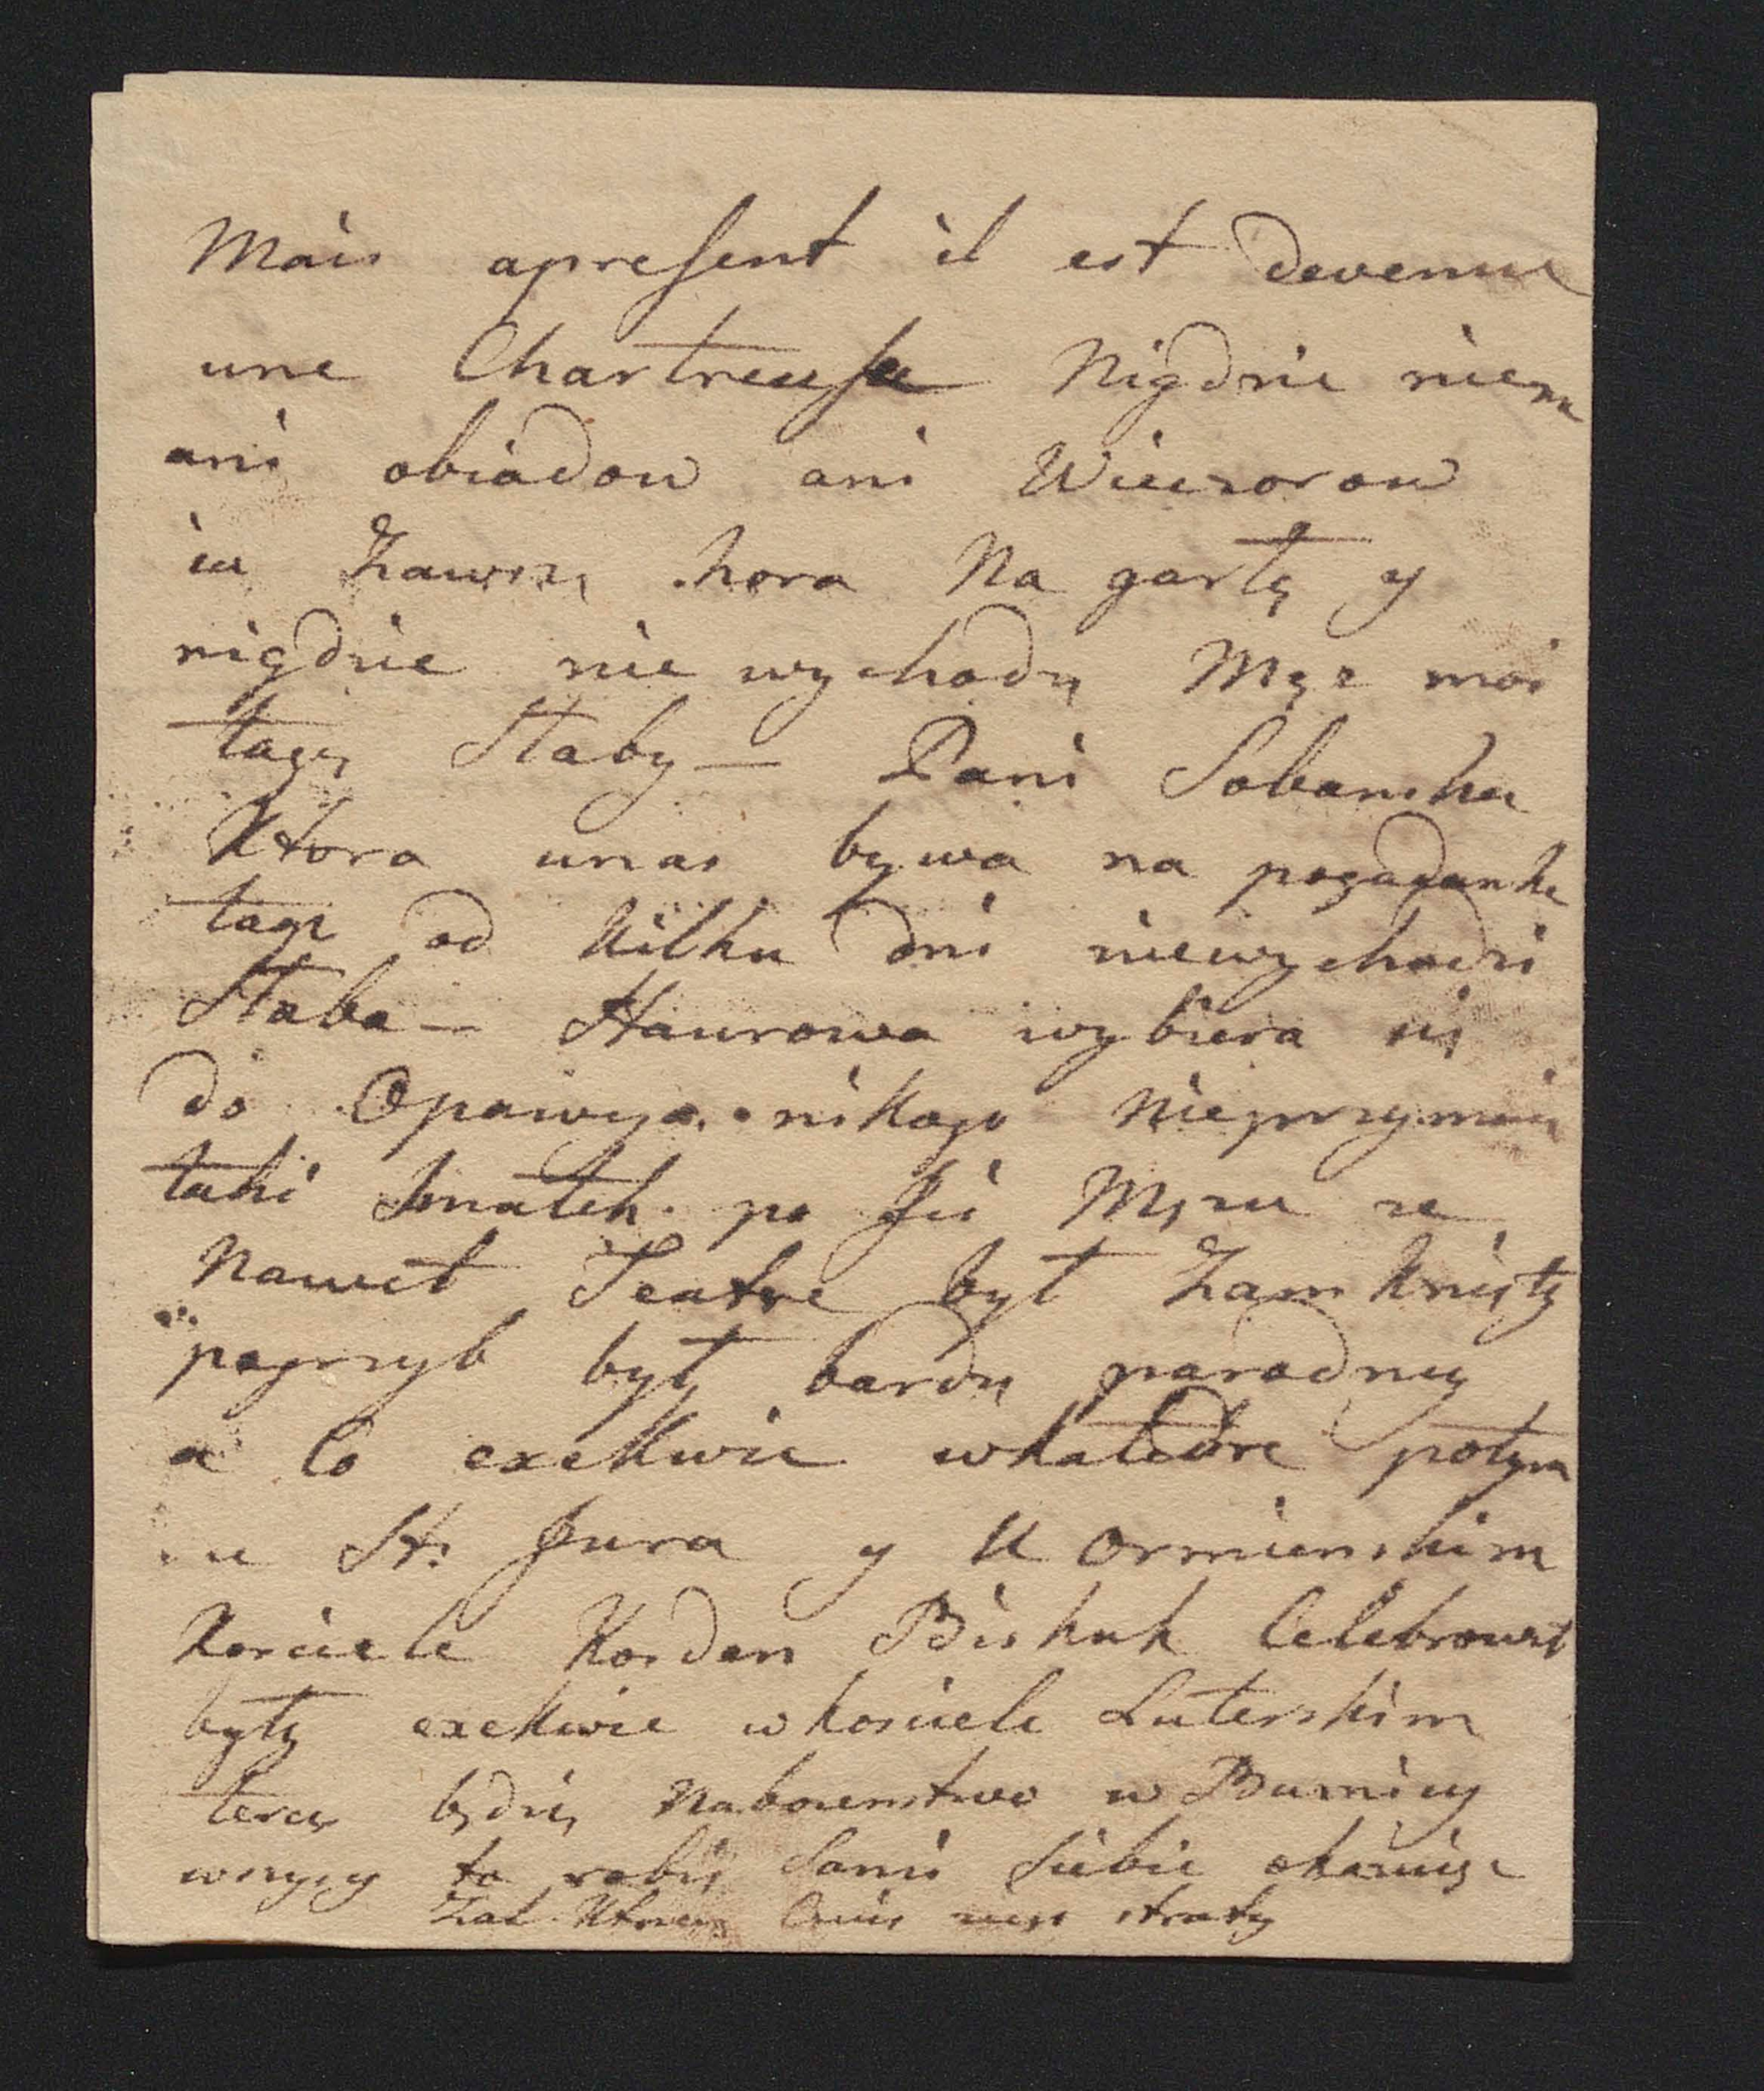 Mais apresent il est devenue
une Chartreuse Nigdzie niem
ani obiadow ani Wieczorow
ia Zawszy hora Na gartę y
nigdzie nie wychodzę Męz moi
tagzy Słaby — Pani Sobanska
Ktora unas bywa na pogadanke
tagz od Kilku dni niewychodzi
Słaba — Haurowa wybiera się
do Opawy nikogo Nieprzymuie
taki Smutek po Jei Męzu ze
Nawet Teatre był Zamknięty
pogrzyb był bardzy paradny
a to exekwie wkatedre potym
u St. Jura y U ormienskim
Kosciele Kozden Biskuk Celebrował
były exekwie w kosciele Luterskim
teraz będzię Nabozenstwo w
wszyscy to robią Sami Siebie okazuiąc
Zal straty